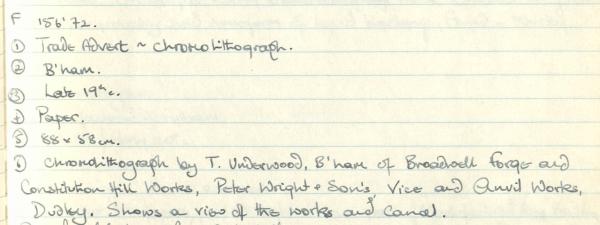 F 156'72.
① Trade Advert ~ Chromolithograph.
② B'ham.
③ Late 19thc.
④ Paper.
⑤ 88 x 58 cm.
① Chromolithograph by T. Underwood, B'ham of Broadwell Forge and
Constitution Hill Works, Peter Wright & Son's Vice and Anvil Works,
Dudley. Shows a view of the works and canal.